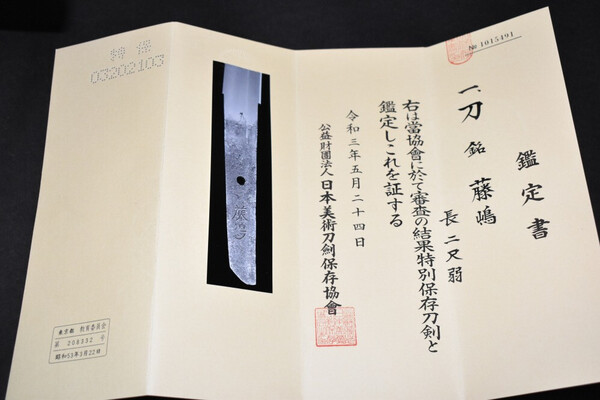 № 1015491
鑑定書
一、刀 銘 藤嶋
長二尺弱
右は當協會に於て審査の結果特別保存刀剣と
鑑定しこれを証する
令和三年五月二十四日
公益財團法人日本美術刀剣保存協會
特保
03202103
東京都 教育委員会
第 208332 号
昭和53年3月22日